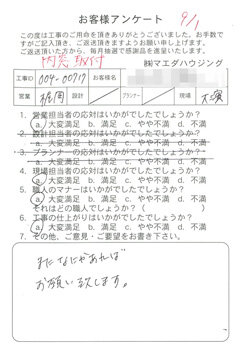 お客様アンケート 9/1
この度は工事のご用命を頂きありがとうございました。お手数で
すがご記入頂き、ご返送頂きますようお願い申し上げます。
ご返送頂いた方から、毎月抽選で感謝品を進呈いたします。
内窓取付 ㈱マエダハウジング
工事ID 004-00719 お客様名
営業 梶岡 設計 プランナー 現場 大濱
1. 営業担当者の応対はいかがでしたでしょうか？
a. 大変満足 b. 満足 c. やや不満 d. 不満
2. 設計担当者の応対はいかがでしたでしょうか？
a. 大変満足 b. 満足 c. やや不満 d. 不満
3. プランナーの応対はいかがでしたでしょうか？
a. 大変満足 b. 満足 c. やや不満 d. 不満
4. 現場担当者の応対はいかがでしたでしょうか？
a. 大変満足 b. 満足 c. やや不満 d. 不満
5. 職人のマナーはいかがでしたでしょうか？
a. 大変満足 b. 満足 c. やや不満 d. 不満
それはどの職人でしょうか？（ ）
6. 工事の仕上がりはいかがでしたでしょうか？
a. 大変満足 b. 満足 c. やや不満 d. 不満
7. その他、ご意見・ご要望をお書き下さい。
またなにかあれば
お願い致します。